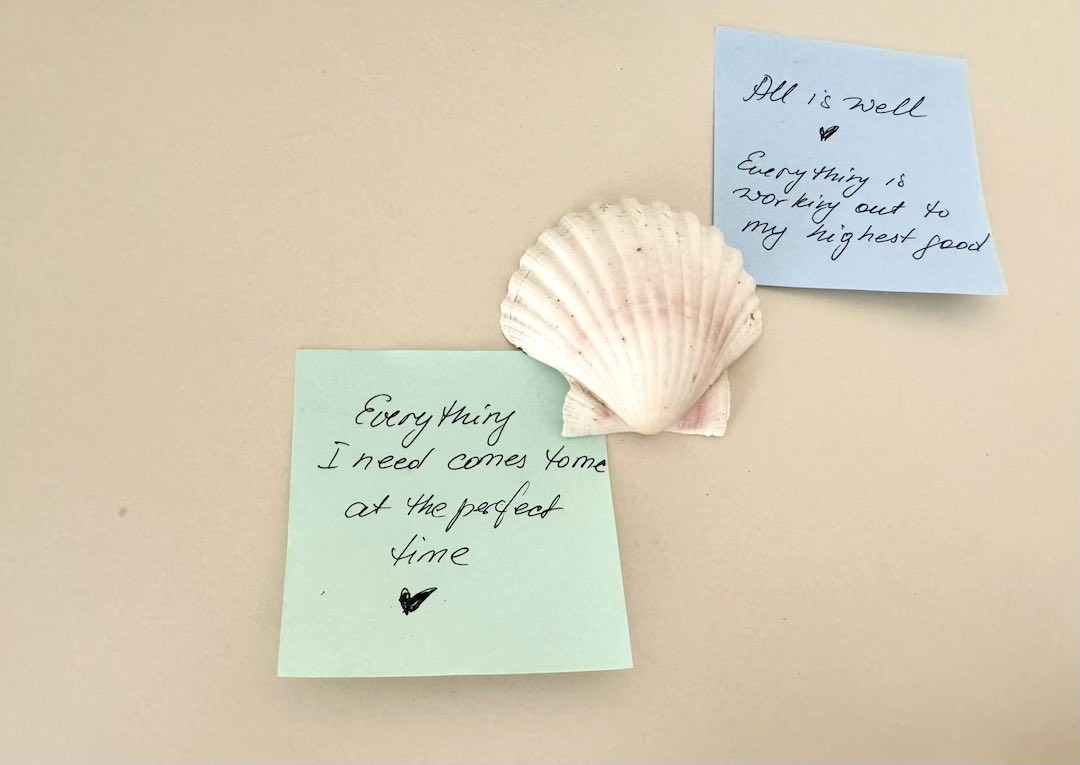 All is well
Everything is
working out to
my highest good
Everything
I need comes to me
at the perfect
time